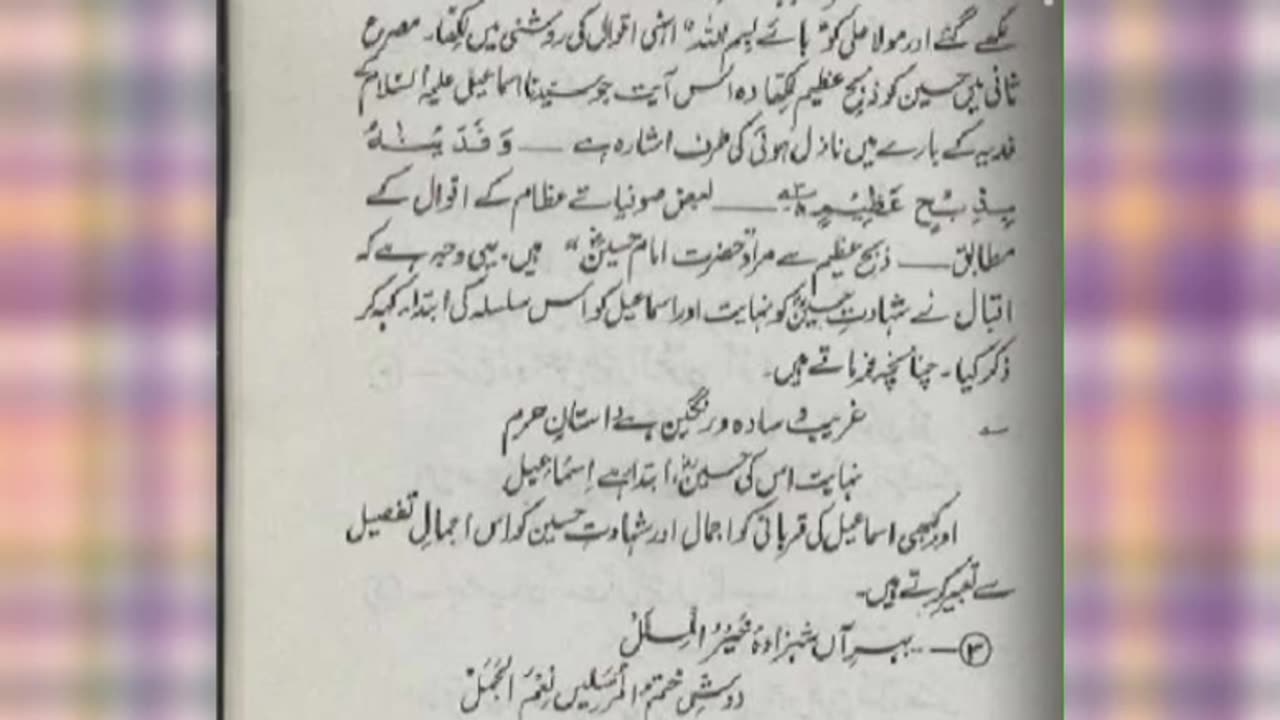 لکھے گئے اور مولا علی کو "بائے بسم اللہ" انہی اقوال کی روشنی میں لکھا۔ مصرع
ثانی میں حسین کو ذبح عظیم لکھا وہ اس آیت جو سیدنا اسماعیل علیہ السلام کے
فدیہ کے بارے میں نازل ہوئی کی طرف اشارہ ہے — وَفَدَيْنٰهُ
بِذِبْحٍ عَظِيْمٍ — بعض صوفیائے عظام کے اقوال کے
مطابق — ذبح عظیم سے مراد حضرت امام حسینؓ" ہیں۔ یہی وجہ ہے کہ
اقبال نے شہادتِ حسینؓ کو نہایت اور اسماعیل کو اس سلسلہ کی ابتداء کہہ کر
ذکر کیا۔ چنانچہ فرماتے ہیں۔
؎ غریب و سادہ و رنگین ہے داستانِ حرم
نہایت اس کی حسینؓ، ابتدا ہے اسماعیل
اور کبھی اسماعیل کی قربانی کو اجمال اور شہادتِ حسین کو اس اجمال تفصیل
سے تعبیر کرتے ہیں۔
③ — بہرِ آں شہزادۂ خَیرُ المِلَلْ
دوشِ ختمُ المُرسَلِیں نِعْمَ الْجَمَلْ